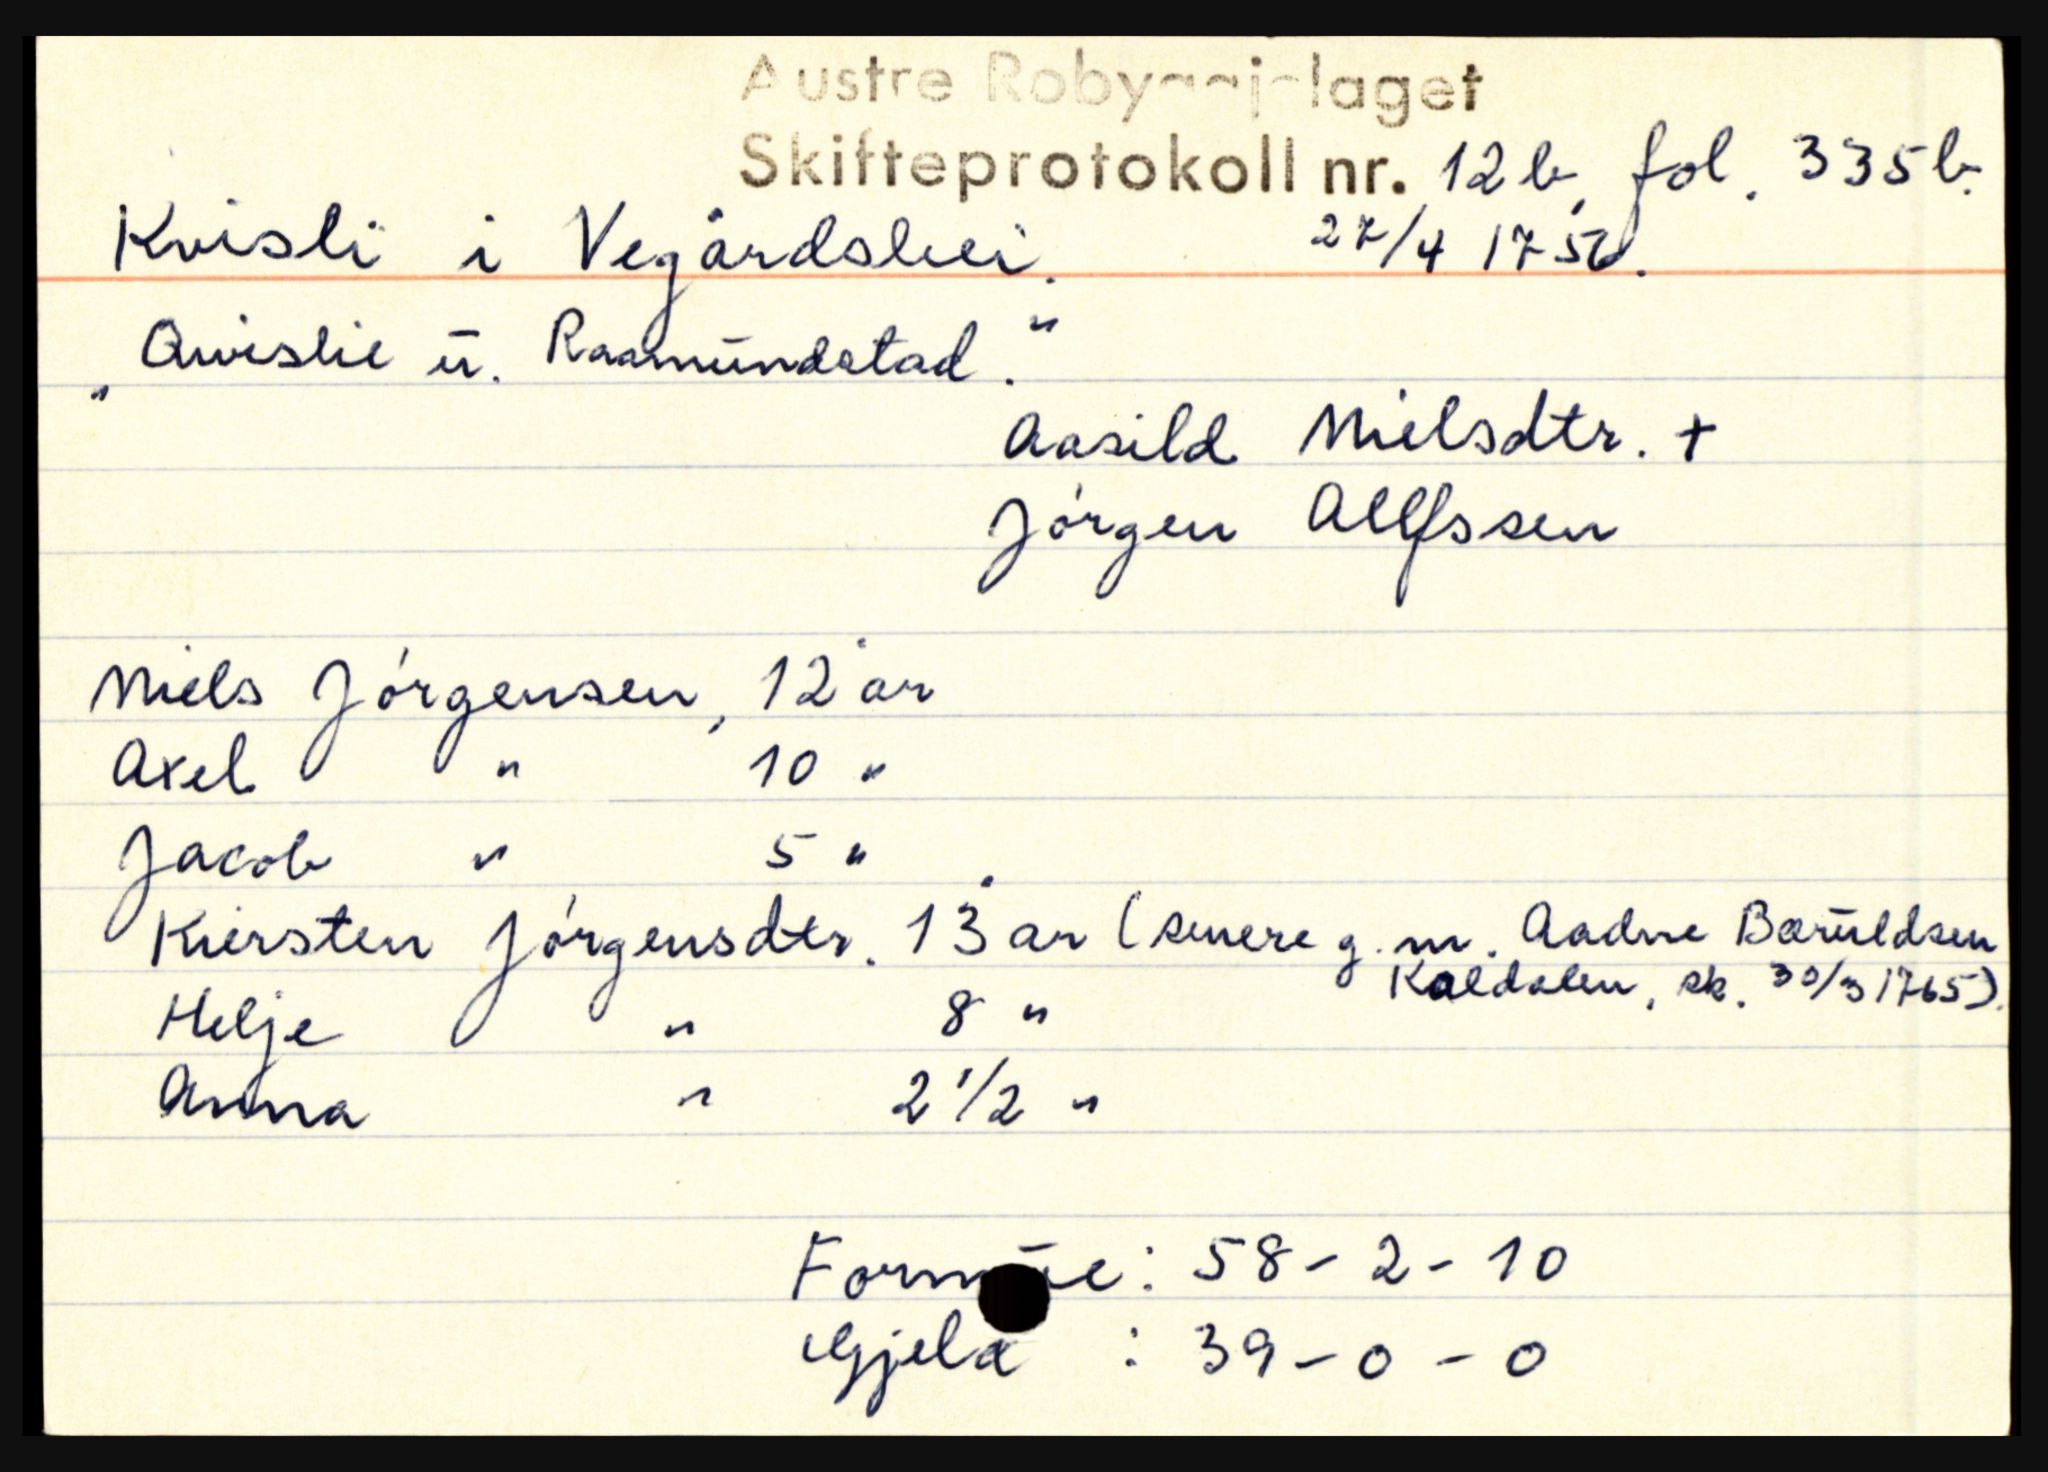 Austre Robyggjelaget
Skifteprotokoll nr. 12b, fol. 335b.
Kvisli i Vegårdshei. 27/4 1756.
„Qvislie ŭ. Raamŭndstad."
Aasild Nielsdtr. +
Jórgen Allfssen
Niels Jórgensen, 12 år
Axel " 10 "
Jacob " 5 "
Kiersten Jórgensdtr. 13 år (senere g. m. Aadne Barŭldsen
Kaldalen, sk. 30/3 1765).
Helje " 8 "
Anna " 2 1/2 "
: 58 - 2 - 10
Gjeld : 39 - 0 - 0